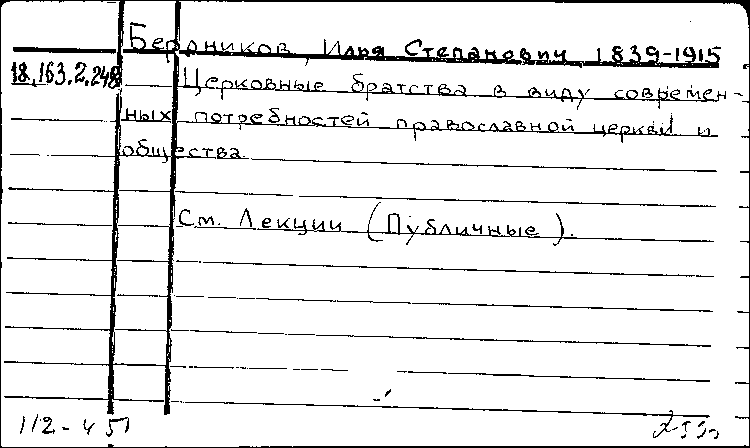 Бердников, Илья Степанович, 1839-1915
18.163.2.248
Церковные братства в виду современ-
ных потребностей православной церкви и
общества.
См. Лекции (Публичные).
112-451